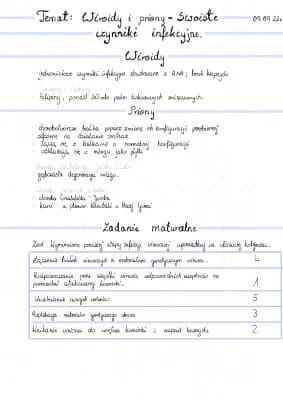 Temat: Wiroidy i priony - Swoiste 09.09.22r.
czynniki infekcyjne.
Wiroidy
- jednoniciowe czynniki infekcyjne zbudowane z RNA; brak kapsydu
- Filipiny, ponad 30 mln palm kokosowych zniszczonych.
Priony
- chorobotwórcze białka poprzez zmianę ich konfiguracji przestrzennej
odporne na działanie
- łączą się z białkami o normalnej konfiguracji
- odkładają się w mózgu jako płytki
Choroba Creutzfeldta - Jakoba (CJD)
gąbczasta degeneracja mózgu.
- choroba Creutzfeldta - Jakoba
- kuru - u plemion
Zadanie maturalne
Zad. Wymienione poniżej etapy infekcji wirusowej uporządkuj we właściwej kolejności.
Łączenie białek wirusowych z materiałem genetycznym wirusa. 4
Rozpoznawanie przez cząstki wirusa odpowiednich receptorów na 1
powierzchni atakowanej komórki.
Uwalnianie nowych wirusów 5
Replikacja materiału genetycznego wirusa 3
Wnikanie wirionu do wnętrza komórki i rozpad kapsydu 2